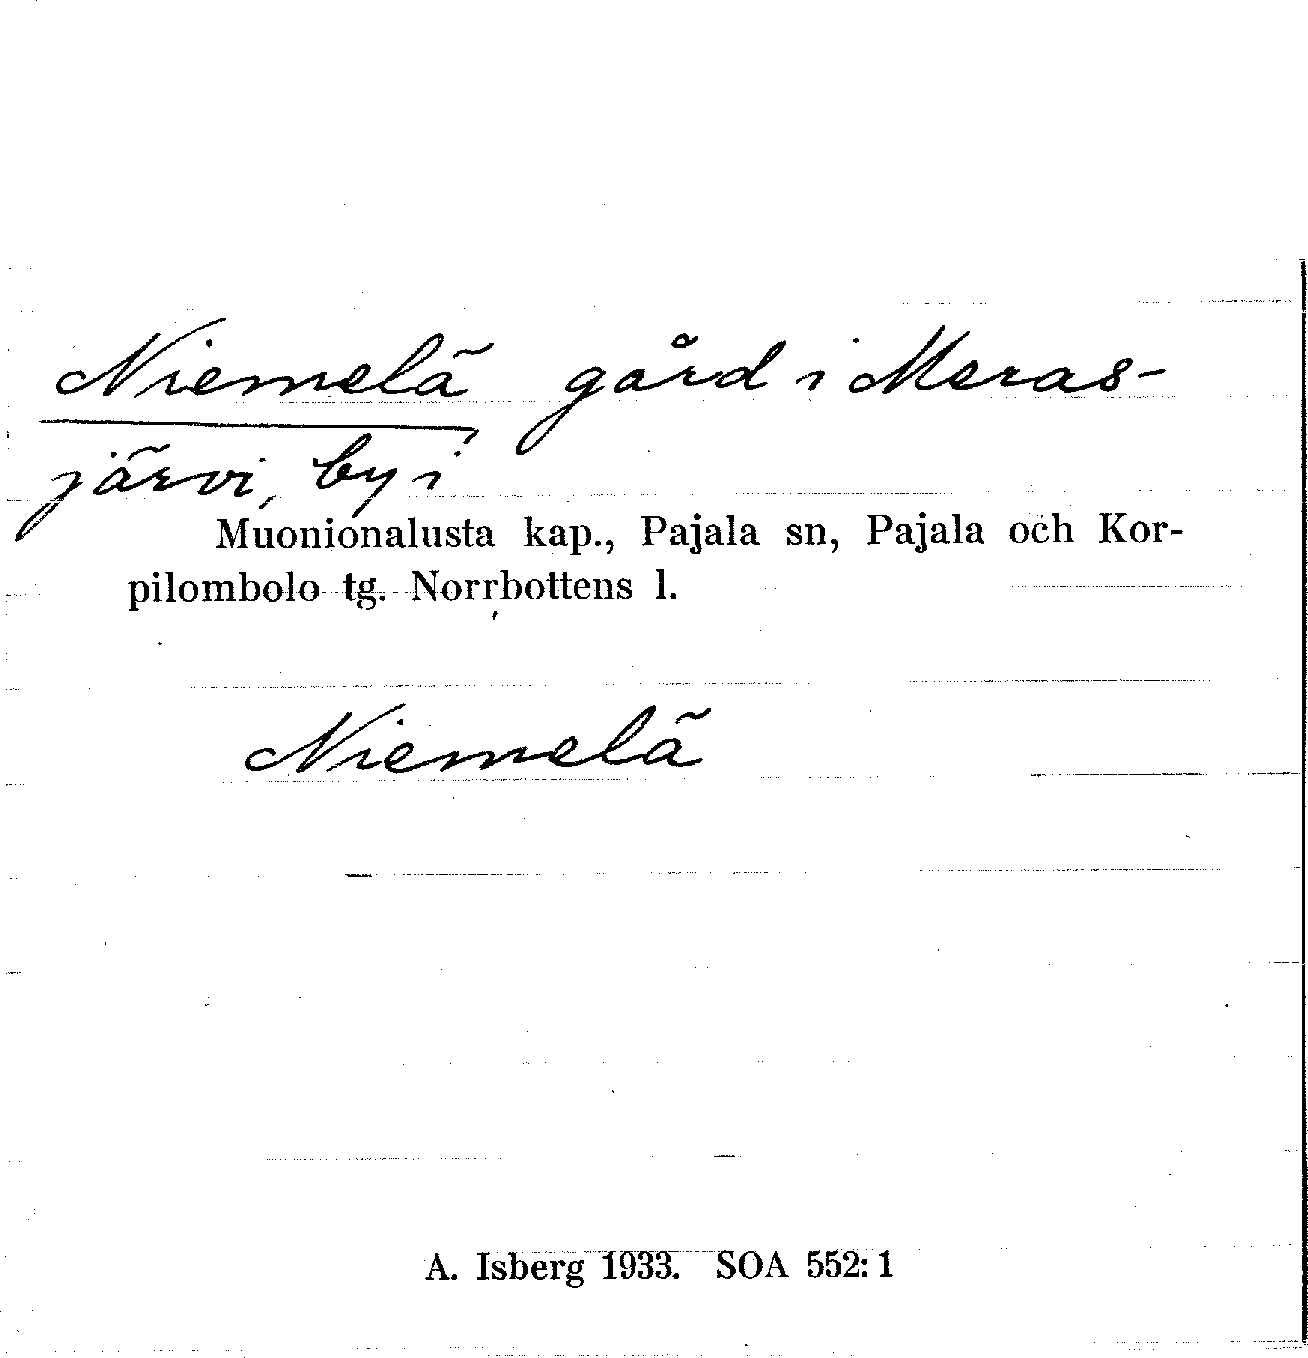 Niemelä gård i Meras-
järvi, by i
Muonionalusta kap., Pajala sn, Pajala och Kor-
pilombolo tg. Norrbottens l.
Niemelä
A. Isberg 1933. SOA 552:1